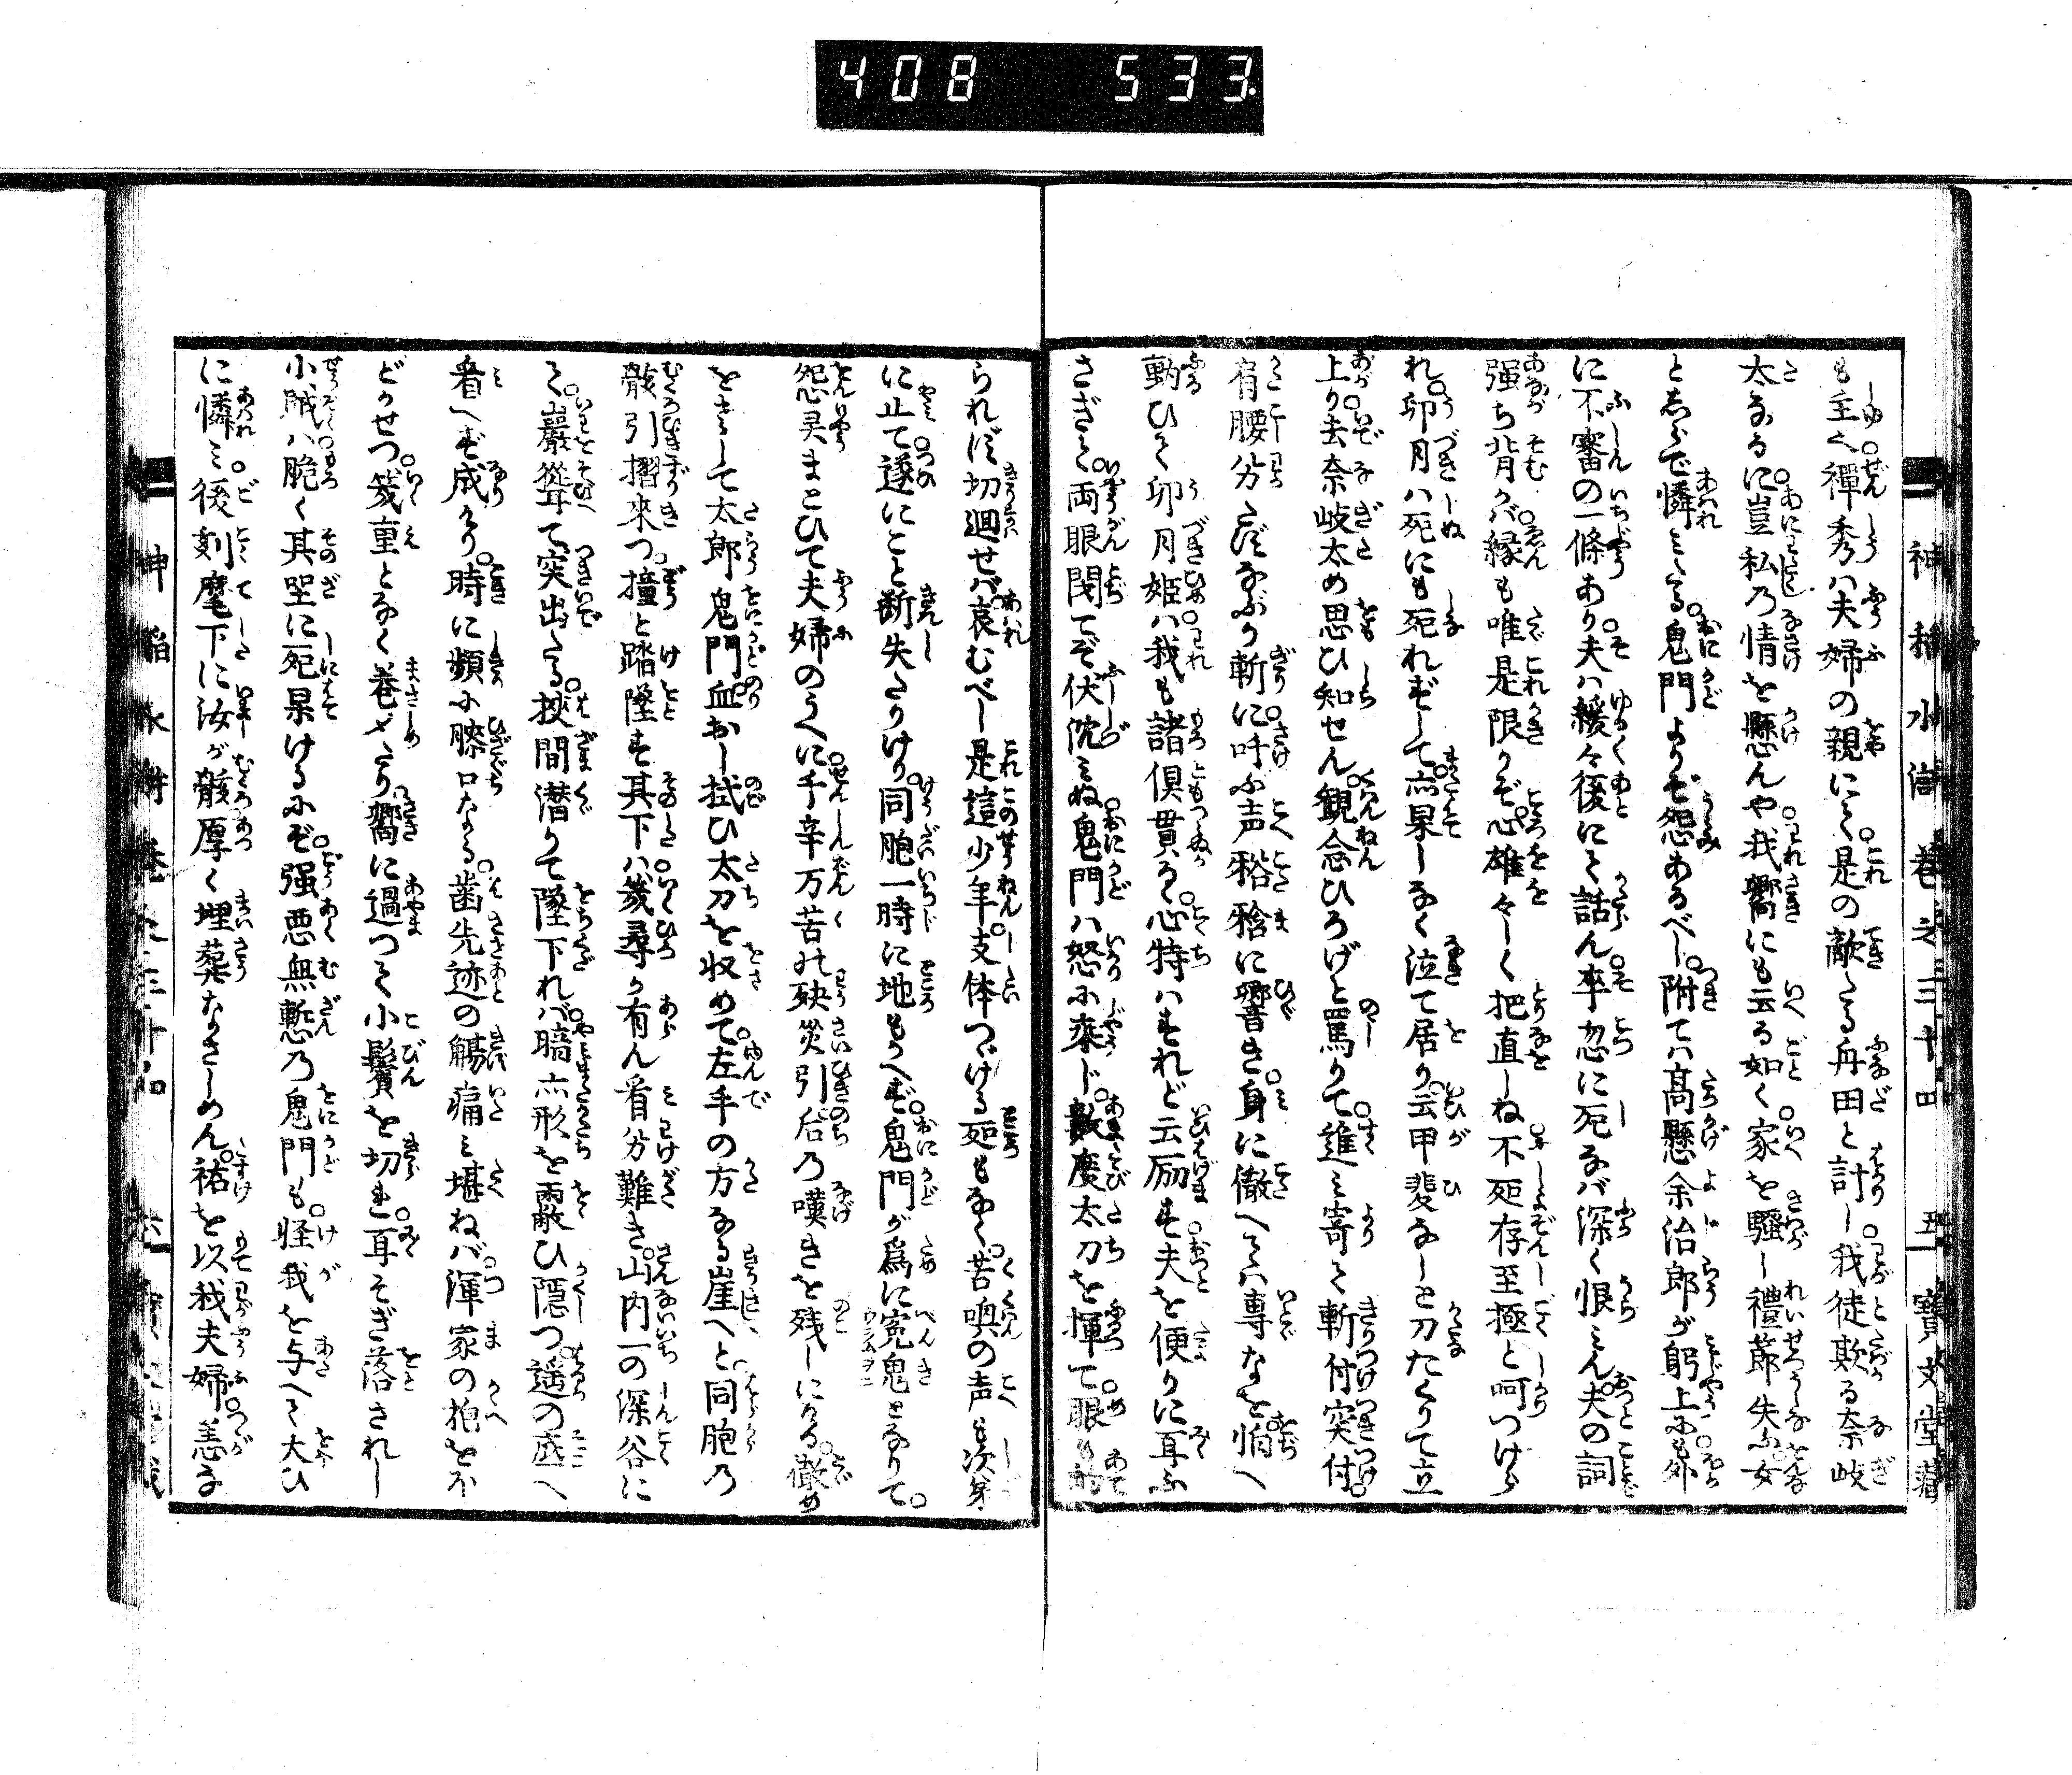 408 533
神稲水滸傳巻之三十四 五 寶文堂藏
も主く禪秀ハ夫婦の親にて是の敵たる舟田と計し我徒欺る奈岐
太なるに豈私の情を懸んや我郷にも云る如く家を騒し禮節失ふ女
と志らで憐ミたる鬼門よりぞ怨あるべし附てハ高懸余治郎が躬上にも外
に不審の一條あり夫ハ緩々後にて話ん卒忽に死なバ深く恨ミん夫の詞
强ち背かバ縁も唯是限りぞ心雄々しく把直しね不死存至極と呵つけら
れ卯月ハ死にも死れずして亦果しなく泣て居り云甲斐なしと刀たくりて立
上り去奈岐太め思ひ知せん観念ひろげと罵りて進ミ寄て斬付突付
肩腰分たずなぶり斬に呼ぶ声谺に響き身に徹へてハ専なを怕へ
動ひて卯月姫ハ我も諸倶貫く心特ハすれど云励す夫を便りに耳ふ
さぎて両眼閉てぞ伏沈ミぬ鬼門ハ怒に乗じ数度太刀を揮て眼も
られず切廻せバ哀むべし是這少年支体つゞける死もなく苦喚の声も次第
に止て遂にこと断失たりけり同胞一時に地もかへず鬼門が為に寃鬼となりて
怨灵まとひて夫婦のうへに千辛万苦の殃災引后の嘆きを残しにける
をさして太郎鬼門血おし拭ひ太刀を収めて左手の方なる崖へと同胞の
骸引摺来つ撞と踏墜す其下ハ幾尋か有ん看分難き山内一の深谷に
て巖聳て突出たる挾間潜りて墜下れバ暗亦形を霰ひ隠つ遥の底へ
看へず成けり時に頻に膝口なる歯先迹の觴痛ミ堪ねバ渾家の抱をほ
どかせつ幾重となく巻〆たり郷に過つて小鬢を切れ耳そぎ落されし
小賊ハ脆く其坐に死果けるにぞ强悪無慙の鬼門も怪我を与へて大ひ
に憐ミ後刻麾下に汝が骸厚く埋葬なさしめん祐を以我夫婦恙な